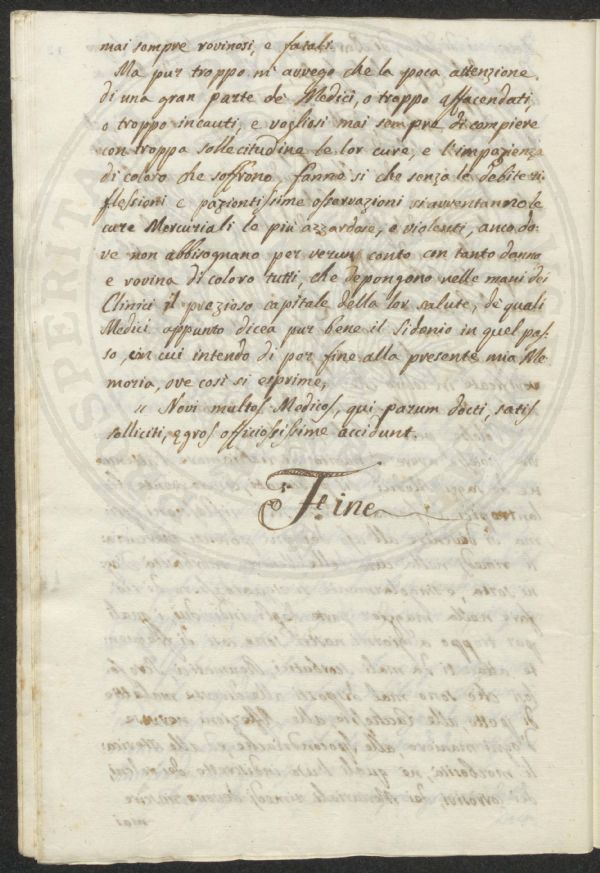 mai sempre rovinosi, e fatali.
Ma pur troppo m'avvego che la poca attenzione
di una gran parte de' Medici, o troppo affacendati,
o troppo incauti, e vogliosi mai sempre di compiere
con troppa sollecitudine le lor cure, e l'impazienza
di coloro che soffrono fanno sì che senza le debite ri-
flessioni e pazientissime osservazioni si avventanno le
cure Mercuriali le più azzardose, e violenti, anco do-
ve non abbisognano per verun conto con tanto danno
e rovina di coloro tutti, che depongono nelle mani dei
Clinici il prezioso capitale della lor salute, de' quali
Medici appunto dicea pur bene il Sidenio in quel pas-
so, con cui intendo di por fine alla presente mia Me-
moria, ove così si esprime,
" Novi multos Medicos, qui parum docti, satis
solliciti, egros officiosissime accidunt.
Fine